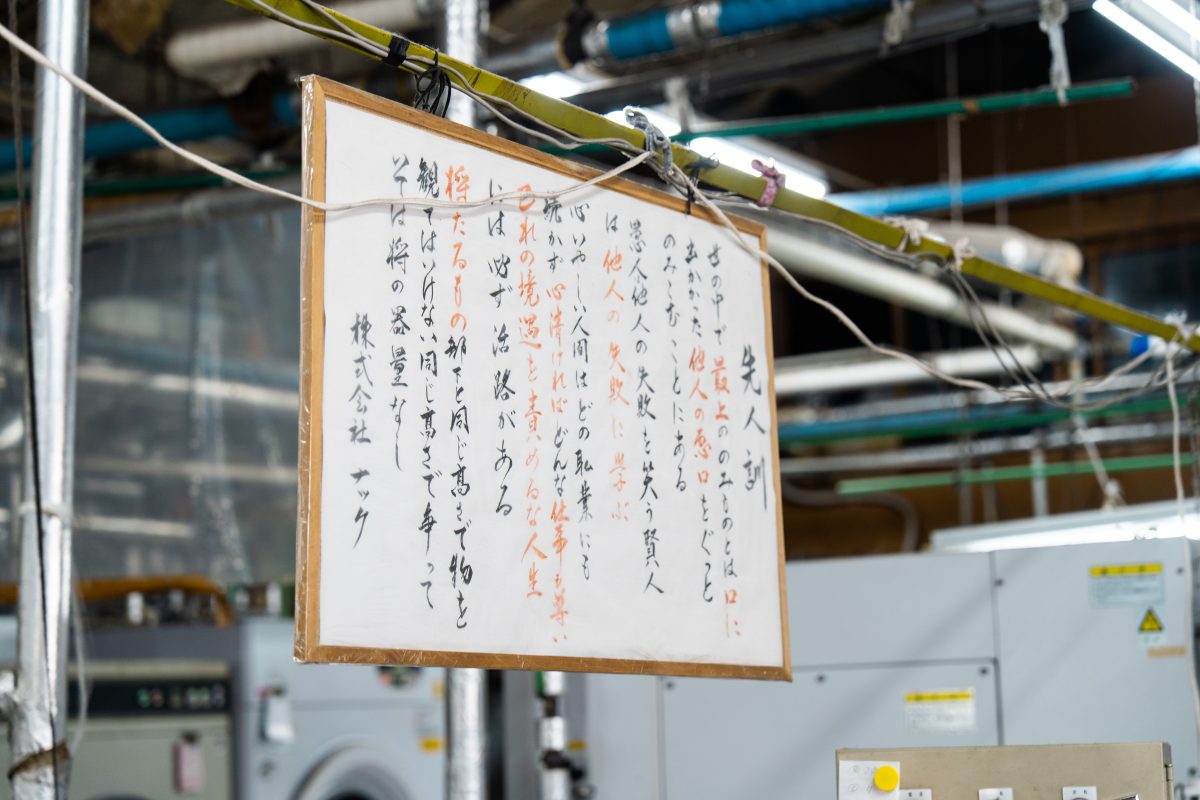 先人訓
世の中で最上ののみものとは口に
出かかった他人の悪口をぐっと
のみこむことにある
愚人他人の失敗を笑う賢人
は他人の失敗に学ぶ
心いやしい人間はどの職業にも
就かず心清ければどんな仕事も尊い
己れの境遇を責めるな人生
には必ず活路がある
将たるもの部下と同じ高さで物を
観てはいけない同じ高さで争って
いては将の器量なし
株式会社 ナック